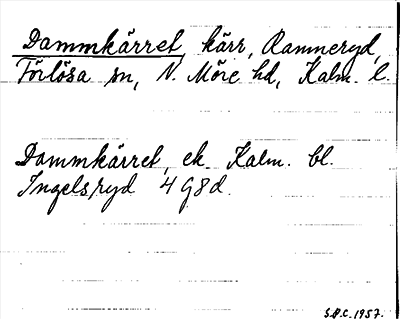 Dammkärret, kärr, Rammeryd,
Förlösa sn, N. Möre hd, Kalm. l.
Dammkärret, ek. Kalm. bl.
Ingelsryd 4G8d.
S.P.C. 1957.